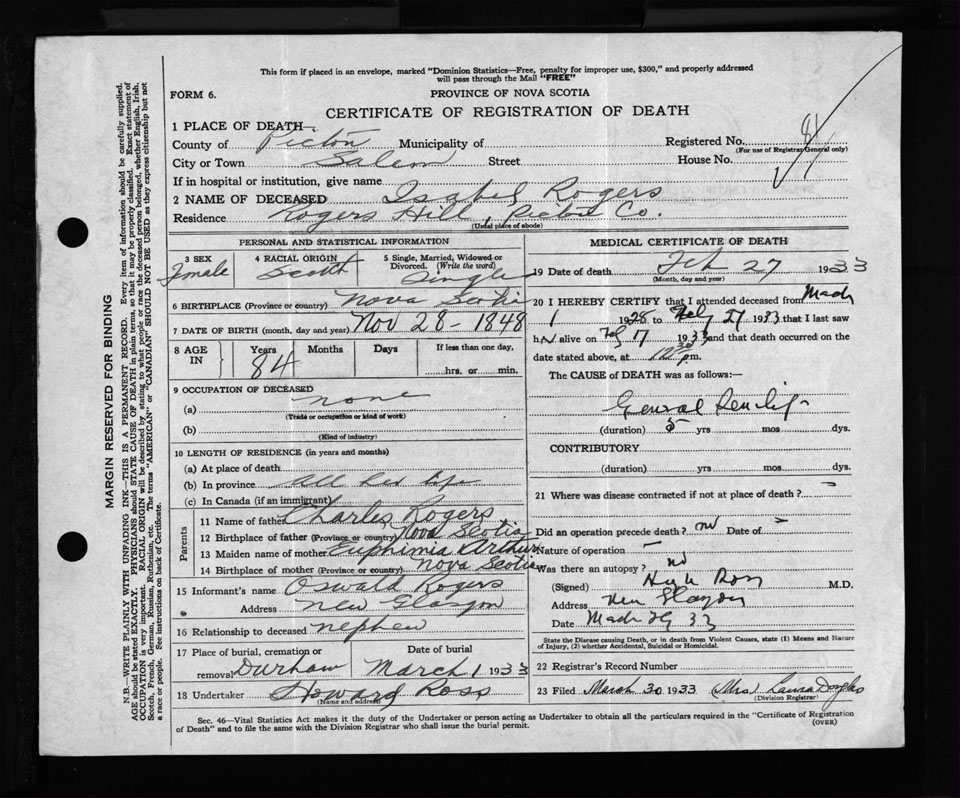 This form if placed in an envelope, marked "Dominion Statistics—Free, penalty for improper use, $300," and properly addressed
will pass through the Mail "FREE"
FORM 6.
PROVINCE OF NOVA SCOTIA
CERTIFICATE OF REGISTRATION OF DEATH
1 PLACE OF DEATH—
County of Pictou Municipality of Registered No.
(For use of Registrar General only)
City or Town Salem Street House No.
If in hospital or institution, give name
2 NAME OF DECEASED Isabel Rogers
Residence Rogers Hill, Pictou Co.
(Usual place of abode)
PERSONAL AND STATISTICAL INFORMATION
3 SEX 4 RACIAL ORIGIN 5 Single, Married, Widowed or
Divorced. (Write the word)
Female Scotch Single
6 BIRTHPLACE (Province or country) Nova Scotia
7 DATE OF BIRTH (month, day and year) Nov 28 - 1848
8 AGE IN Years Months Days If less than one day,
84 hrs. or min.
9 OCCUPATION OF DECEASED
(a) none
(Trade or occupation or kind of work)
(b)
(Kind of industry)
10 LENGTH OF RESIDENCE (in years and months)
(a) At place of death
(b) In province All her life
(c) In Canada (if an immigrant)
Parents
11 Name of father Charles Rogers
12 Birthplace of father (Province or country) Nova Scotia
13 Maiden name of mother Euphimia Arthur
14 Birthplace of mother (Province or country) Nova Scotia
15 Informant's name Oswald Rogers
Address New Glasgow
16 Relationship to deceased nephew
17 Place of burial, cremation or Date of burial
removal Durham March 1 1933
18 Undertaker Howard Ross
(Name and address)
MEDICAL CERTIFICATE OF DEATH
19 Date of death Feb 27 1933
(Month, day and year)
20 I HEREBY CERTIFY that I attended deceased from March
1 1928 to Feby 27 1933 that I last saw
h alive on Feb 17 1933 and that death occurred on the
date stated above, at m.
The CAUSE of DEATH was as follows:—
General Senility
(duration) 5 yrs mos dys.
CONTRIBUTORY
(duration) yrs mos dys.
21 Where was disease contracted if not at place of death? -
Did an operation precede death? no Date of -
Nature of operation -
Was there an autopsy? no
(Signed) Hugh Ross M.D.
Address New Glasgow
Date March 29 33
State the Disease causing Death, or in death from Violent Causes, state (1) Means and Nature
of Injury, (2) whether Accidental, Suicidal or Homicidal.
22 Registrar's Record Number
23 Filed March 30 1933 (Mrs) Laura Douglas
(Division Registrar)
Sec. 46—Vital Statistics Act makes it the duty of the Undertaker or person acting as Undertaker to obtain all the particulars required in the "Certificate of Registration
of Death" and to file the same with the Division Registrar who shall issue the burial permit.
(OVER)
MARGIN RESERVED FOR BINDING
N.B.—WRITE PLAINLY WITH UNFADING INK—THIS IS A PERMANENT RECORD. Every item of information should be carefully supplied.
AGE should be stated EXACTLY. PHYSICIANS should STATE CAUSE OF DEATH in plain terms, so that it may be properly classified. Exact statement of
OCCUPATION is very important. RACIAL ORIGIN will be described by stating to what people or race the deceased person belonged, whether English, Irish,
Scotch, French, German, Russian, Ruthenian, etc. The terms "AMERICAN" or "CANADIAN" SHOULD NOT BE USED as they express citizenship but not
a race or people. See instructions on back of Certificate.